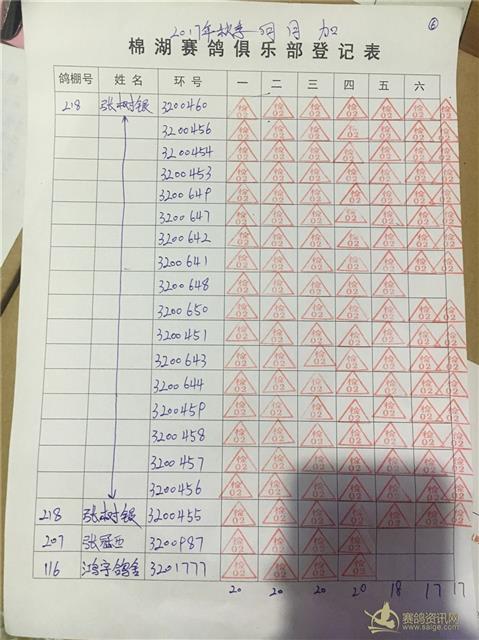 2017年秋季 一 ⑥
棉湖赛鸽俱乐部登记表
鸽棚号 姓名 环号 一 二 三 四 五 六
218 张树银 3200460 检02 检02 检02 检02 检02 检02 检02
3200456 检02 检02 检02 检02 检02 检02 检02
3200454 检02 检02 检02 检02 检02 检02 检02
3200453 检02 检02 检02 检02 检02 检02 检02
3200649 检02 检02 检02 检02 检02 检02 检02
3200647 检02 检02 检02 检02 检02 检02 检02
3200642 检02 检02 检02 检02 检02 检02 检02
3200641 检02 检02 检02 检02 检02 检02 检02
3200648 检02 检02 检02 检02 检02
3200650 检02 检02 检02 检02 检02 检02 检02
3200451 检02 检02 检02 检02 检02 检02 检02
3200643 检02 检02 检02 检02 检02 检02 检02
3200644 检02 检02 检02 检02 检02 检02 检02
3200459 检02 检02 检02 检02 检02 检02 检02
3200458 检02 检02 检02 检02 检02 检02 检02
3200457 检02 检02 检02 检02 检02 检02 检02
3200456 检02 检02 检02 检02 检02 检02 检02
218 张树银 3200455 检02 检02 检02 检02 检02 检02 检02
207 张 3200987 检02 检02 检02 检02
116 鸿宇鸽舍 3201777 检02 检02 检02 检02
20 20 20 20 18 17 17
赛鸽资讯网
www.saige.com